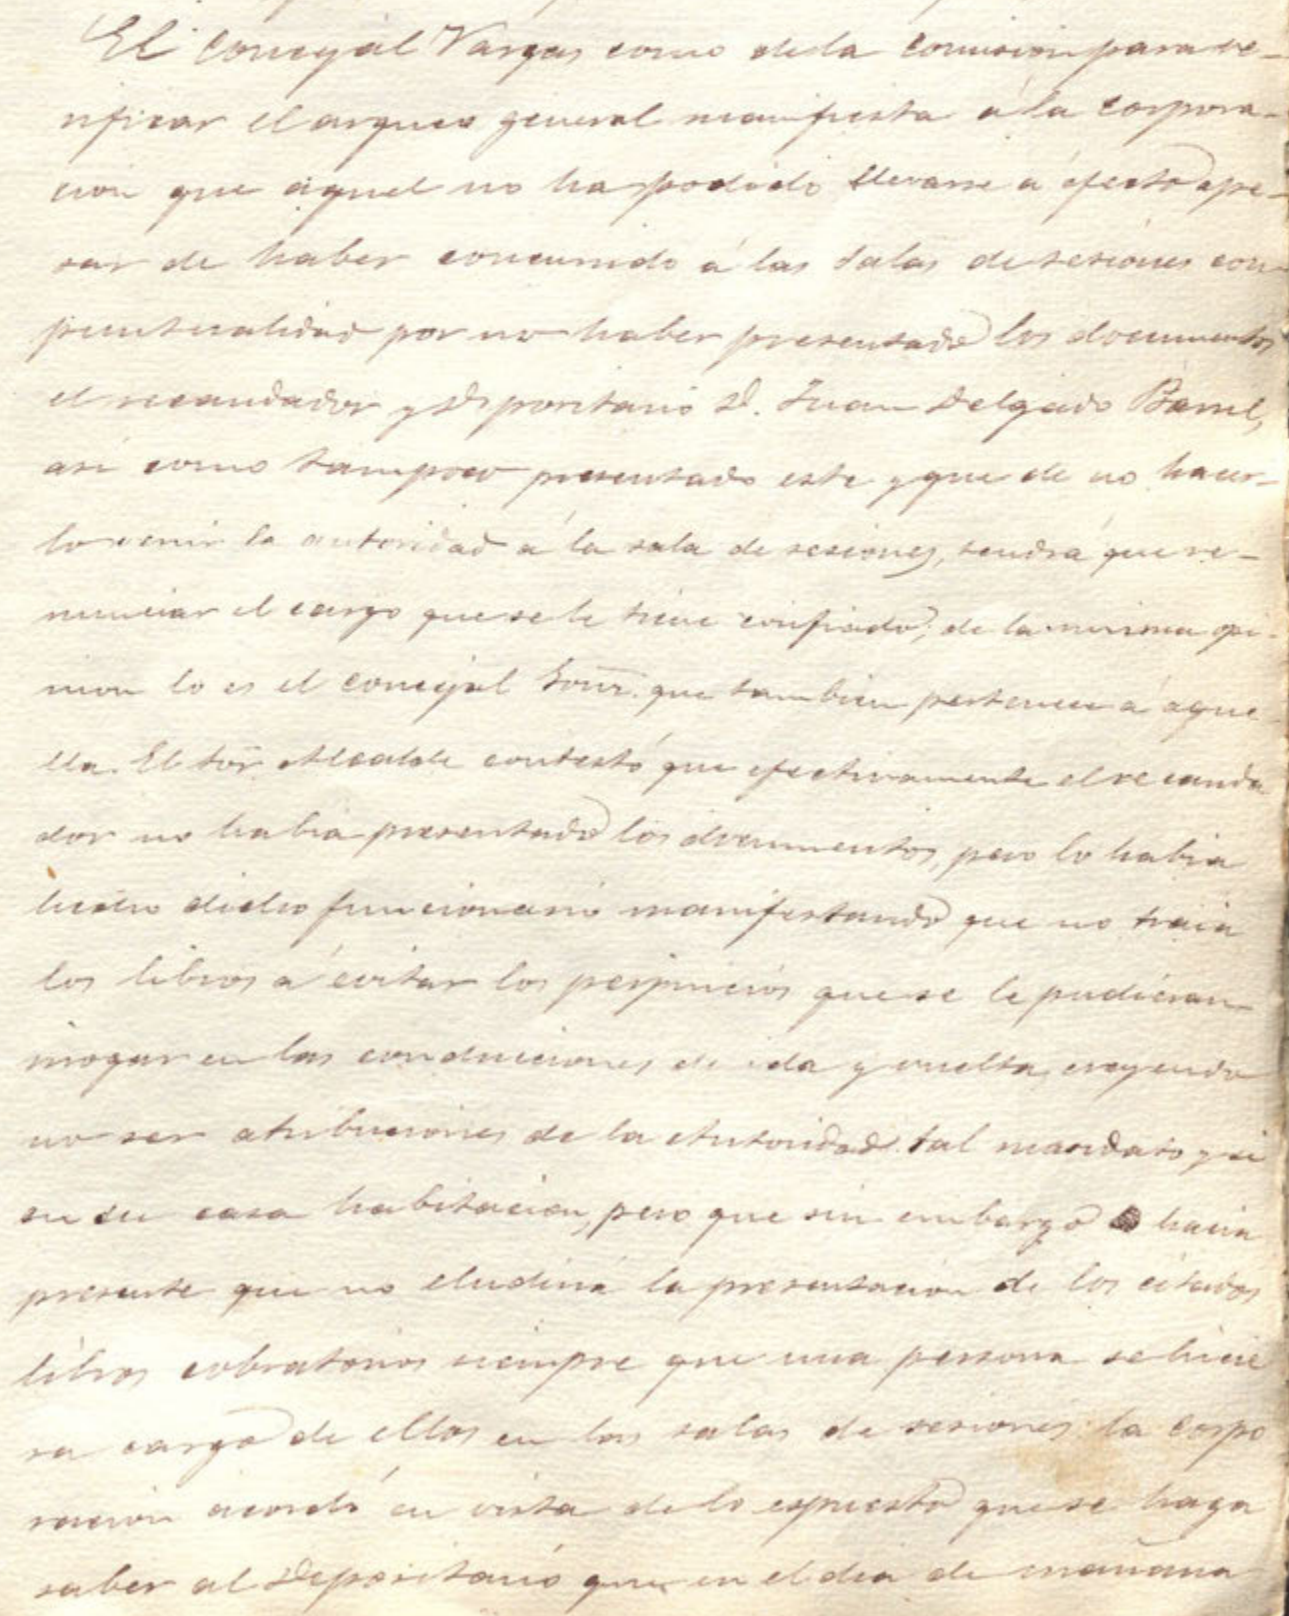 El Concejal Vargas como dela comision para ve-
rificar el arqueo general manifiesta á la corpora-
cion que aquel no ha podido llevarse á éfecto ape-
sar de haber concurrido á las salas de sesiónes con
puntualidad por no haber presentado los documentos
el recaudador y Depositario D. Juan Delgado
asi como tampoco presentado este y que de no hacer-
lo venir la autoridad á la sala de sesiones, tendrá que re-
nunciar el cargo que se le tiene confiado; de la misma opi-
nion lo es el concejal que tambien pertenece á aque-
lla. El Sor. Alcalde contestó que efectivamente el recauda
dor no habia presentado los documentos, pero lo habia
hecho dicho funcionario manifestando que no traia
los libros a évitar los perjuicios que se le pudieran
irrogar en las conduciones de ida y vuelta, creyendo
no ser atribuciones de la Autoridad tal mandato y si
en su casa habitacion, pero que sin embargo hacia
presente que no eludiria la presentacion de los citados
libros cobratorios siempre que una persona se hicie
ra cargo de ellos en las salas de sesiones la corpo
racion acordó en vista de lo espuesto que se haga
saber al Depositario que en el dia de mañana